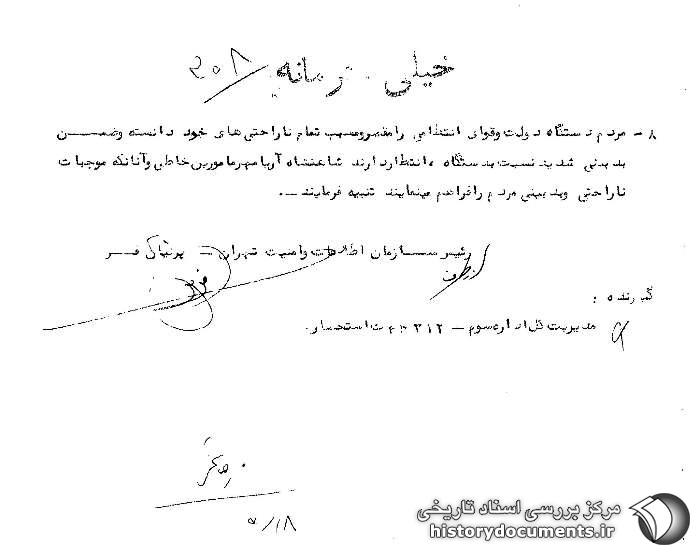 خیلی محرمانه
۸ - مردم دستگاه دولت و قوای انتظامی را مقصر و مسبب تمام ناراحتی های خود دانسته و ضمن
بدبینی شدید نسبت بدستگاه ، انتظار دارند شاهنشاه آریامهر مامورین خاطی و آنانکه موجبات
ناراحتی و بدبینی مردم را فراهم مینمایند تنبیه فرمایند .
رئیس سازمان اطلاعات و امنیت تهران - پرنیان فر
از طرف
گیرنده :
مدیریت کل اداره سوم - ۳۱۲ جهت استحضار .
۵/۱۸
مرکز بررسی اسناد تاریخی
historydocuments.ir